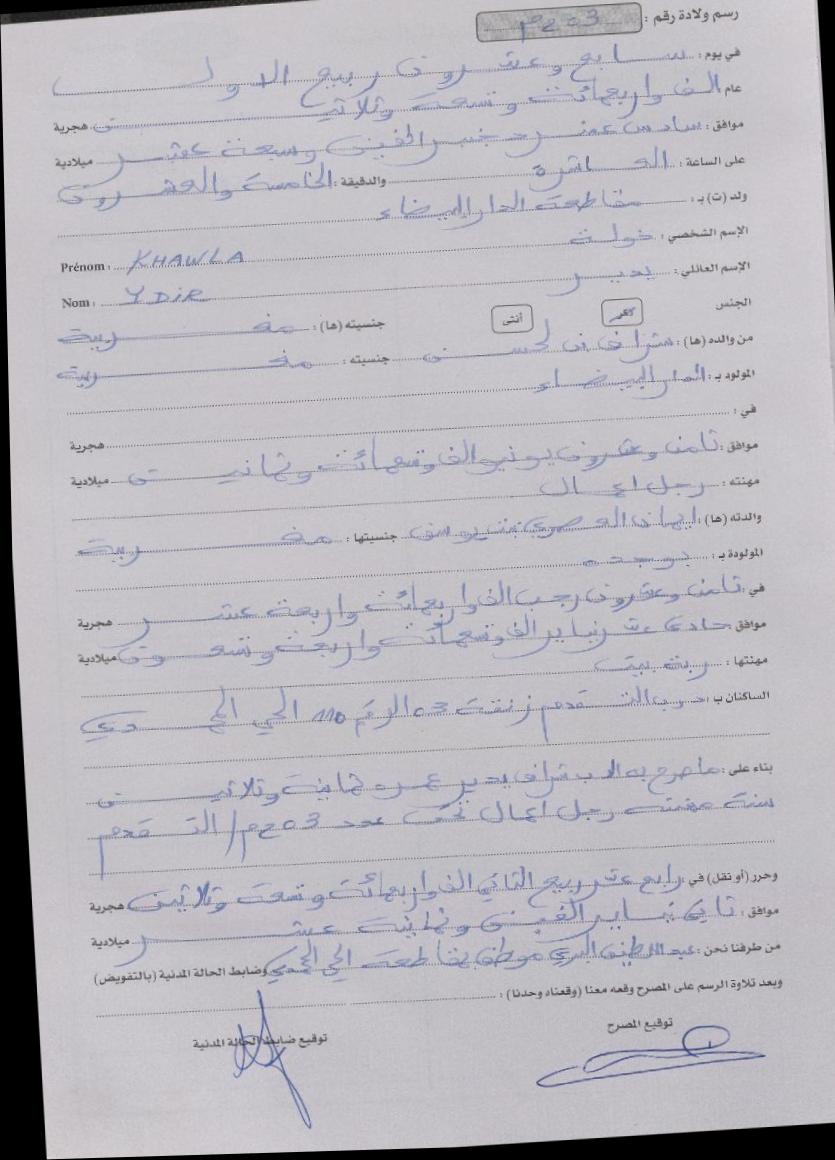 رسم ولادة رقم :
في يوم : سابع وعشرون ربيع الاول
عام الف واربعمائة وتسعة وثلاثين هجرية
موافق : سادس عشر دجنبر الفين وسبعة عشر ميلادية
على الساعة : العاشرة والدقيقة : الخامسة والعشرون
ولد (ت) بـ : مقاطعة الدار البيضاء
الإسم الشخصي : خولة
Prénom : KHAWLA
الإسم العائلي : يدير
Nom : YDIR
الجنس ذكر أنثى جنسيته (ها) : مغربية
من والده (ها) : بن لحسن جنسيته : مغربية
المولود بـ : الدار البيضاء
في : هجرية
موافق : ثامن وعشرون يونيو الف وتسعمائة وثمانين ميلادية
مهنته : رجل اعمال
والدته (ها) : ايمان بنت يوسف جنسيتها : مغربية
المولودة بـ : بوجدة
في : ثامن وعشرون رجب الف واربعمائة واربعة عشر هجرية
موافق : حادي عشر يناير الف وتسعمائة واربعة وتسعون ميلادية
مهنتها : ربة بيت
الساكنان ب : درب التقدم زنقة 03 الرقم 110 الحي المحمدي
بناء على : ما صرح به الاب يدير عمره ثمانية وثلاثين
سنة مهنته رجل اعمال تحت عدد / التقدم
وحرر (أو نقل) في : رابع عشر ربيع الثاني الف واربعمائة وتسعة وثلاثين هجرية
موافق : ثاني يناير الفين وثمانية عشر ميلادية
من طرفنا نحن : عبد اللطيف موظف بمقاطعة الحي المحمدي وضابط الحالة المدنية (بالتفويض)
وبعد تلاوة الرسم على المصرح وقعه معنا (وقعناه وحدنا) :
توقيع المصرح توقيع ضابط الحالة المدنية